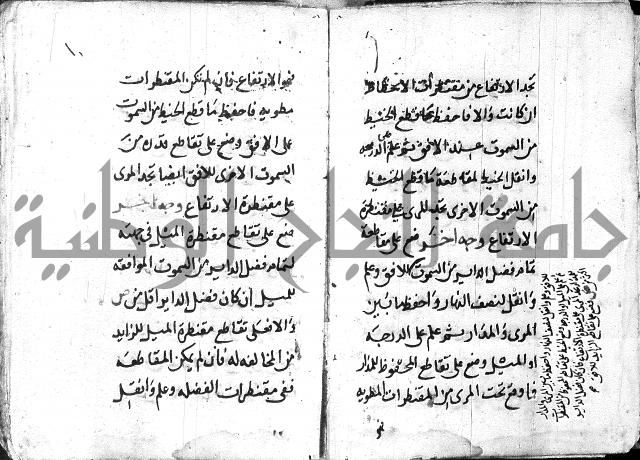 تجد الارتفاع من مقنطرات الانحطاط
ان كانت والا فاحفظ ما قطع الخيط
من السموت عند الافق ثم علم على الدرجه
وانقل الخيط لمقاطعة ما قطع الخيط
من السموت الاخرى تجد المرى على مقنطرة
الارتفاع وجه اخر ضع على تقاطع
تمام فضل الداير من السموت للافق وعلم
وانقل لنصف النهار واحفظ ما بين
المرى والمدار ثم علم على الدرجه
او الميل وضع على تقاطع المحفوظ للمدار
فما وقع تحت المرى من المقنطرات المطويه
نحو الارتفاع فان لم تكن المقنطرات
مطويه فاحفظ ما قطع الخيط من السموت
على الافق وضع على تقاطع قدره من
السموت الاخرى للافق ايضا تجد المرى
على مقنطرة الارتفاع وجه اخر
ضع على تقاطع مقنطرة الميل في جهته
لتمام فضل الداير من السموت الموافقه
للميل ان كان فضل الداير اقل من ص
والا فعلى تقاطع مقنطرة الميل للزايد
من المخالفه له فان لم يكن المقاطعه
ففي مقنطرات الفضله وعلم وانقل
جامعة النجاح الوطنية